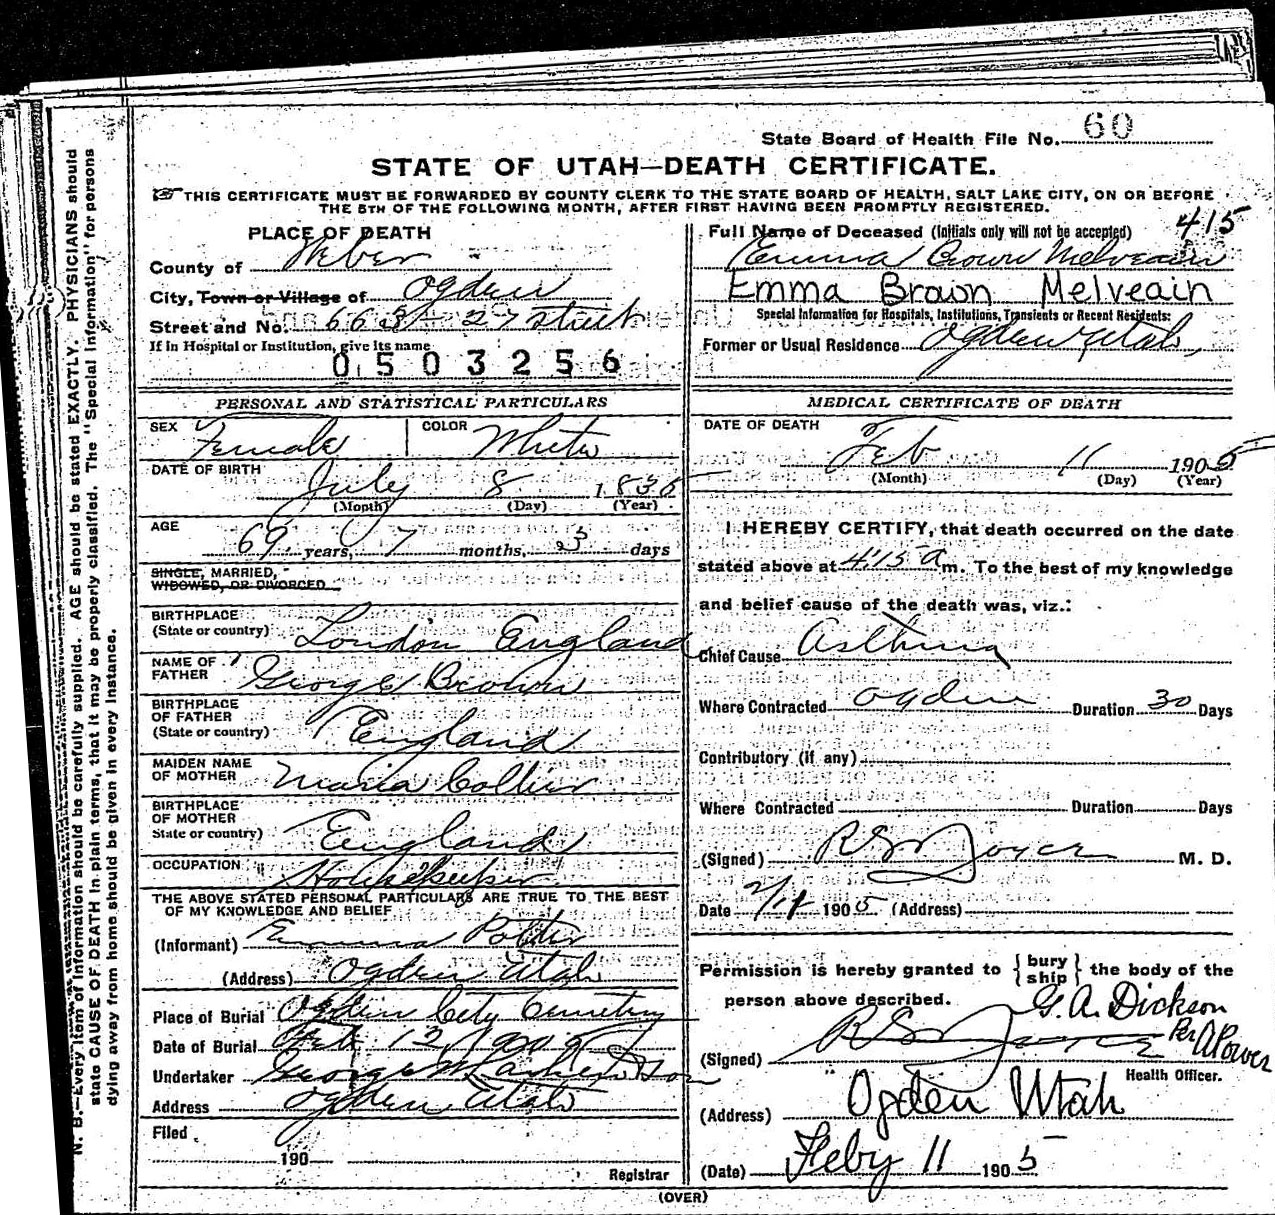 State Board of Health File No. 60
STATE OF UTAH—DEATH CERTIFICATE.
THIS CERTIFICATE MUST BE FORWARDED BY COUNTY CLERK TO THE STATE BOARD OF HEALTH, SALT LAKE CITY, ON OR BEFORE
THE 5TH OF THE FOLLOWING MONTH, AFTER FIRST HAVING BEEN PROMPTLY REGISTERED.
415
PLACE OF DEATH
County of Weber
City, Town or Village of Ogden
Street and No. 663 27 street
If in Hospital or Institution, give its name
0503256
Full Name of Deceased (Initials only will not be accepted)
Emma Brown Melveain
Emma Brown Melveain
Special Information for Hospitals, Institutions, Transients or Recent Residents:
Former or Usual Residence Ogden Utah,
PERSONAL AND STATISTICAL PARTICULARS
SEX Female COLOR White
DATE OF BIRTH July 8 1835
(Month) (Day) (Year)
AGE 69 years, 7 months, 3 days
SINGLE, MARRIED,
WIDOWED, OR DIVORCED
BIRTHPLACE
(State or country) London England
NAME OF
FATHER George Brown
BIRTHPLACE
OF FATHER
(State or country) England
MAIDEN NAME
OF MOTHER Maria Collier
BIRTHPLACE
OF MOTHER
State or country) England
OCCUPATION Housekeeper
THE ABOVE STATED PERSONAL PARTICULARS ARE TRUE TO THE BEST
OF MY KNOWLEDGE AND BELIEF
(Informant) Emma Potter
(Address) Ogden Utah
Place of Burial Ogden City Cemetery
Date of Burial Feb 13 1905
Undertaker George W Larkin & Son
Address Ogden Utah
Filed
190
Registrar
MEDICAL CERTIFICATE OF DEATH
DATE OF DEATH
Feb 11 1905
(Month) (Day) (Year)
I HEREBY CERTIFY, that death occurred on the date
stated above at 4:15 a m. To the best of my knowledge
and belief cause of the death was, viz.:
Chief Cause Asthma
Where Contracted Ogden Duration 30 Days
Contributory (if any)
Where Contracted Duration Days
(Signed) R S Joyce M. D.
Date 2/11 1905 (Address)
Permission is hereby granted to {bury ship} the body of the
person above described. G. A. Dickson
(Signed) R S Joyce Per A Power
Health Officer.
(Address) Ogden Utah
(Date) Feby 11 1905
(OVER)
N. B.—Every item of information should be carefully supplied. AGE should be stated EXACTLY. PHYSICIANS should
state CAUSE OF DEATH in plain terms, that it may be properly classified. The "Special Information" for persons
dying away from home should be given in every instance.